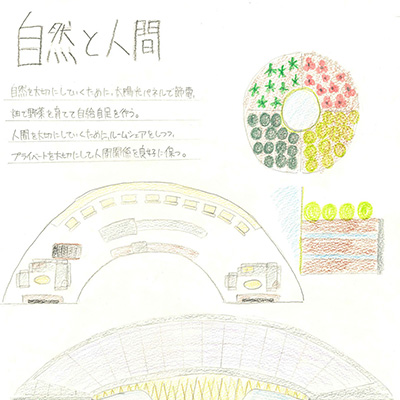 自然と人間
自然を大切にしていくために、太陽光パネルで節電、
畑で野菜を育てて自給自足を行う。
人間を大切にしていくために、ルームシェアをしつつ、
プライベートを大切にして人間関係を良好に保つ。